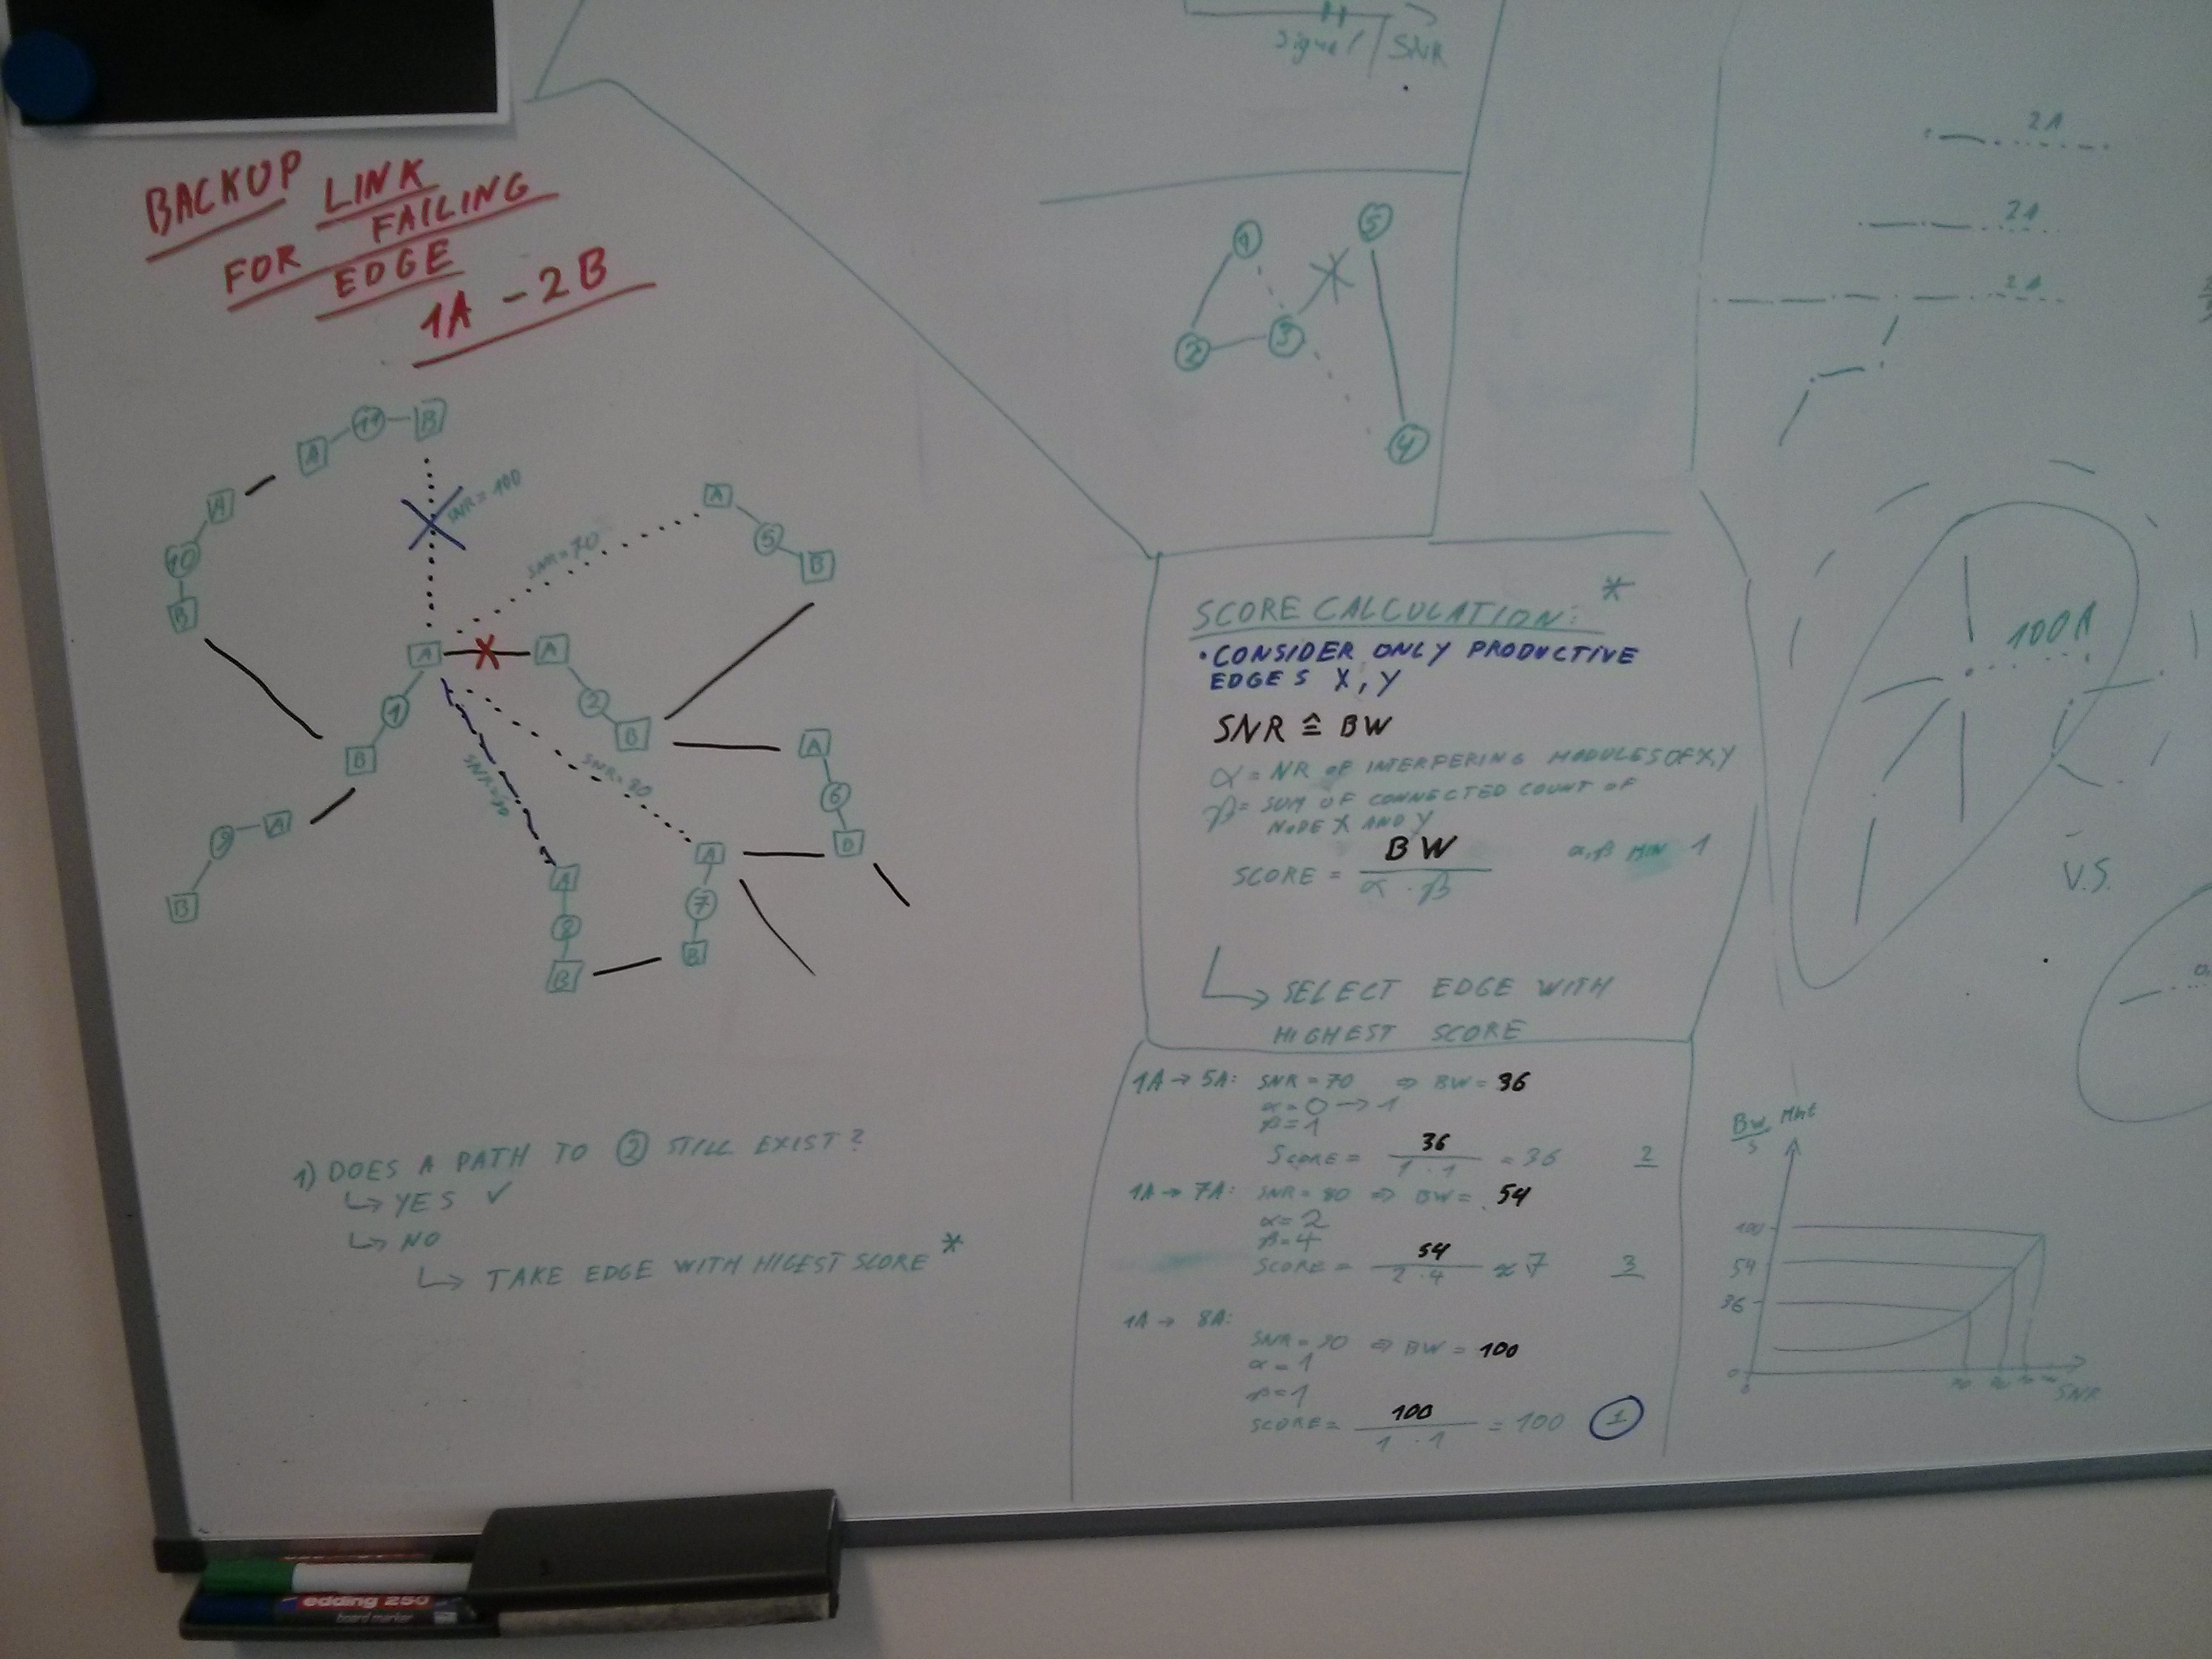 BACKUP LINK
FOR FAILING
EDGE
1A - 2B
11
B
A
A
10
B
SNR = 100
SNR = 70
A
5
B
A
A
1
B
2
B
SNR = 80
A
6
B
9
A
B
A
8
B
A
7
B
1) DOES A PATH TO 2 STILL EXIST?
↳ YES ✓
↳ NO
↳ TAKE EDGE WITH HIGEST SCORE *
Signal / SNR
1
5
2
3
4
SCORE CALCULATION: *
• CONSIDER ONLY PRODUCTIVE
EDGES X, Y
SNR ≙ BW
α = NR OF INTERFERING MODULES OF X, Y
β = SUM OF CONNECTED COUNT OF
NODE X AND Y
SCORE = BW / α · β
α, β MIN 1
↳ SELECT EDGE WITH
HIGHEST SCORE
1A → 5A: SNR = 70 ⇒ BW = 36
α = 0 → 1
β = 1
SCORE = 36 / 1 · 1 = 36 2
1A → 7A: SNR = 80 ⇒ BW = 54
α = 2
β = 4
SCORE = 54 / 2 · 4 ≈ 7 3
1A → 8A:
SNR = 90 ⇒ BW = 100
α = 1
β = 1
SCORE = 100 / 1 · 1 = 100 1
2A
2A
2A
100A
V.S.
BW
100
54
36
0
0
SNR
edding 250
board marker